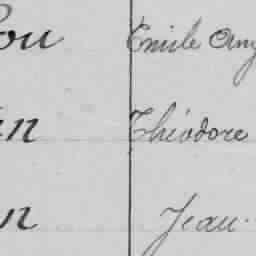 ou Emile Aug
n Théodore
n Jean